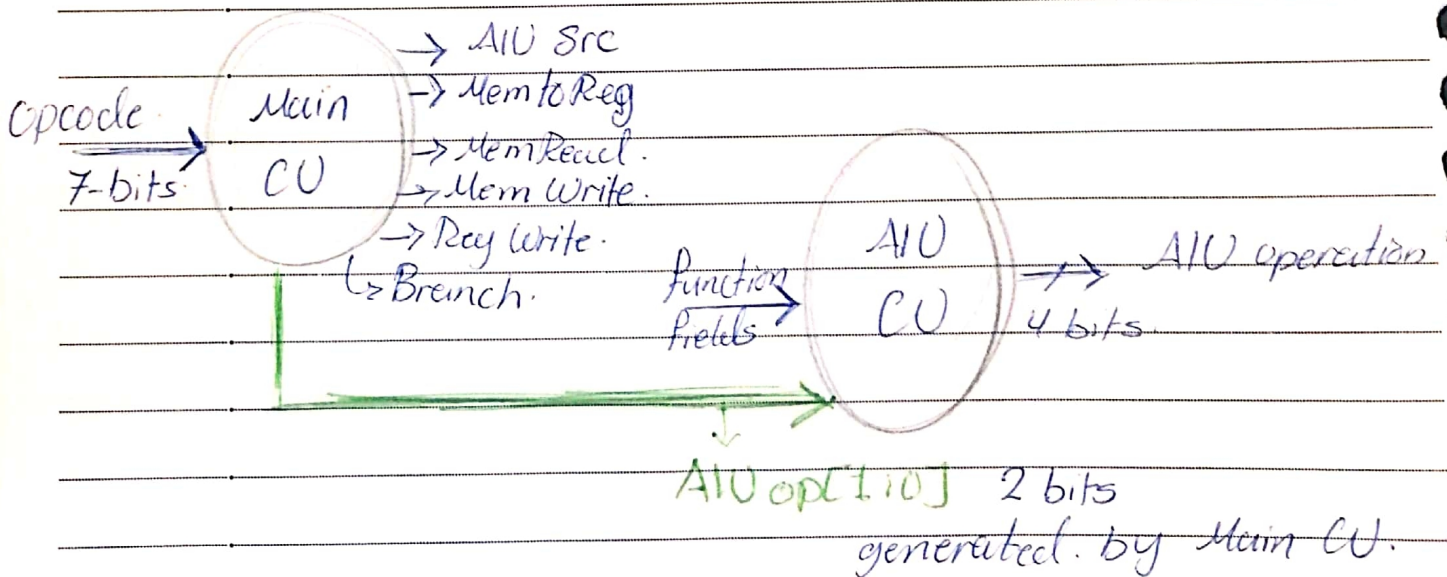 Opcode.
7-bits.
Main
CU
→ AlU Src
→ MemtoReg
→ MemRead.
→ Mem Write.
→ Reg Write.
↳ Branch.
function
fields
AlU
CU
AlU operation
4 bits.
AlU op[1:0] 2 bits
generated. by Main CU.